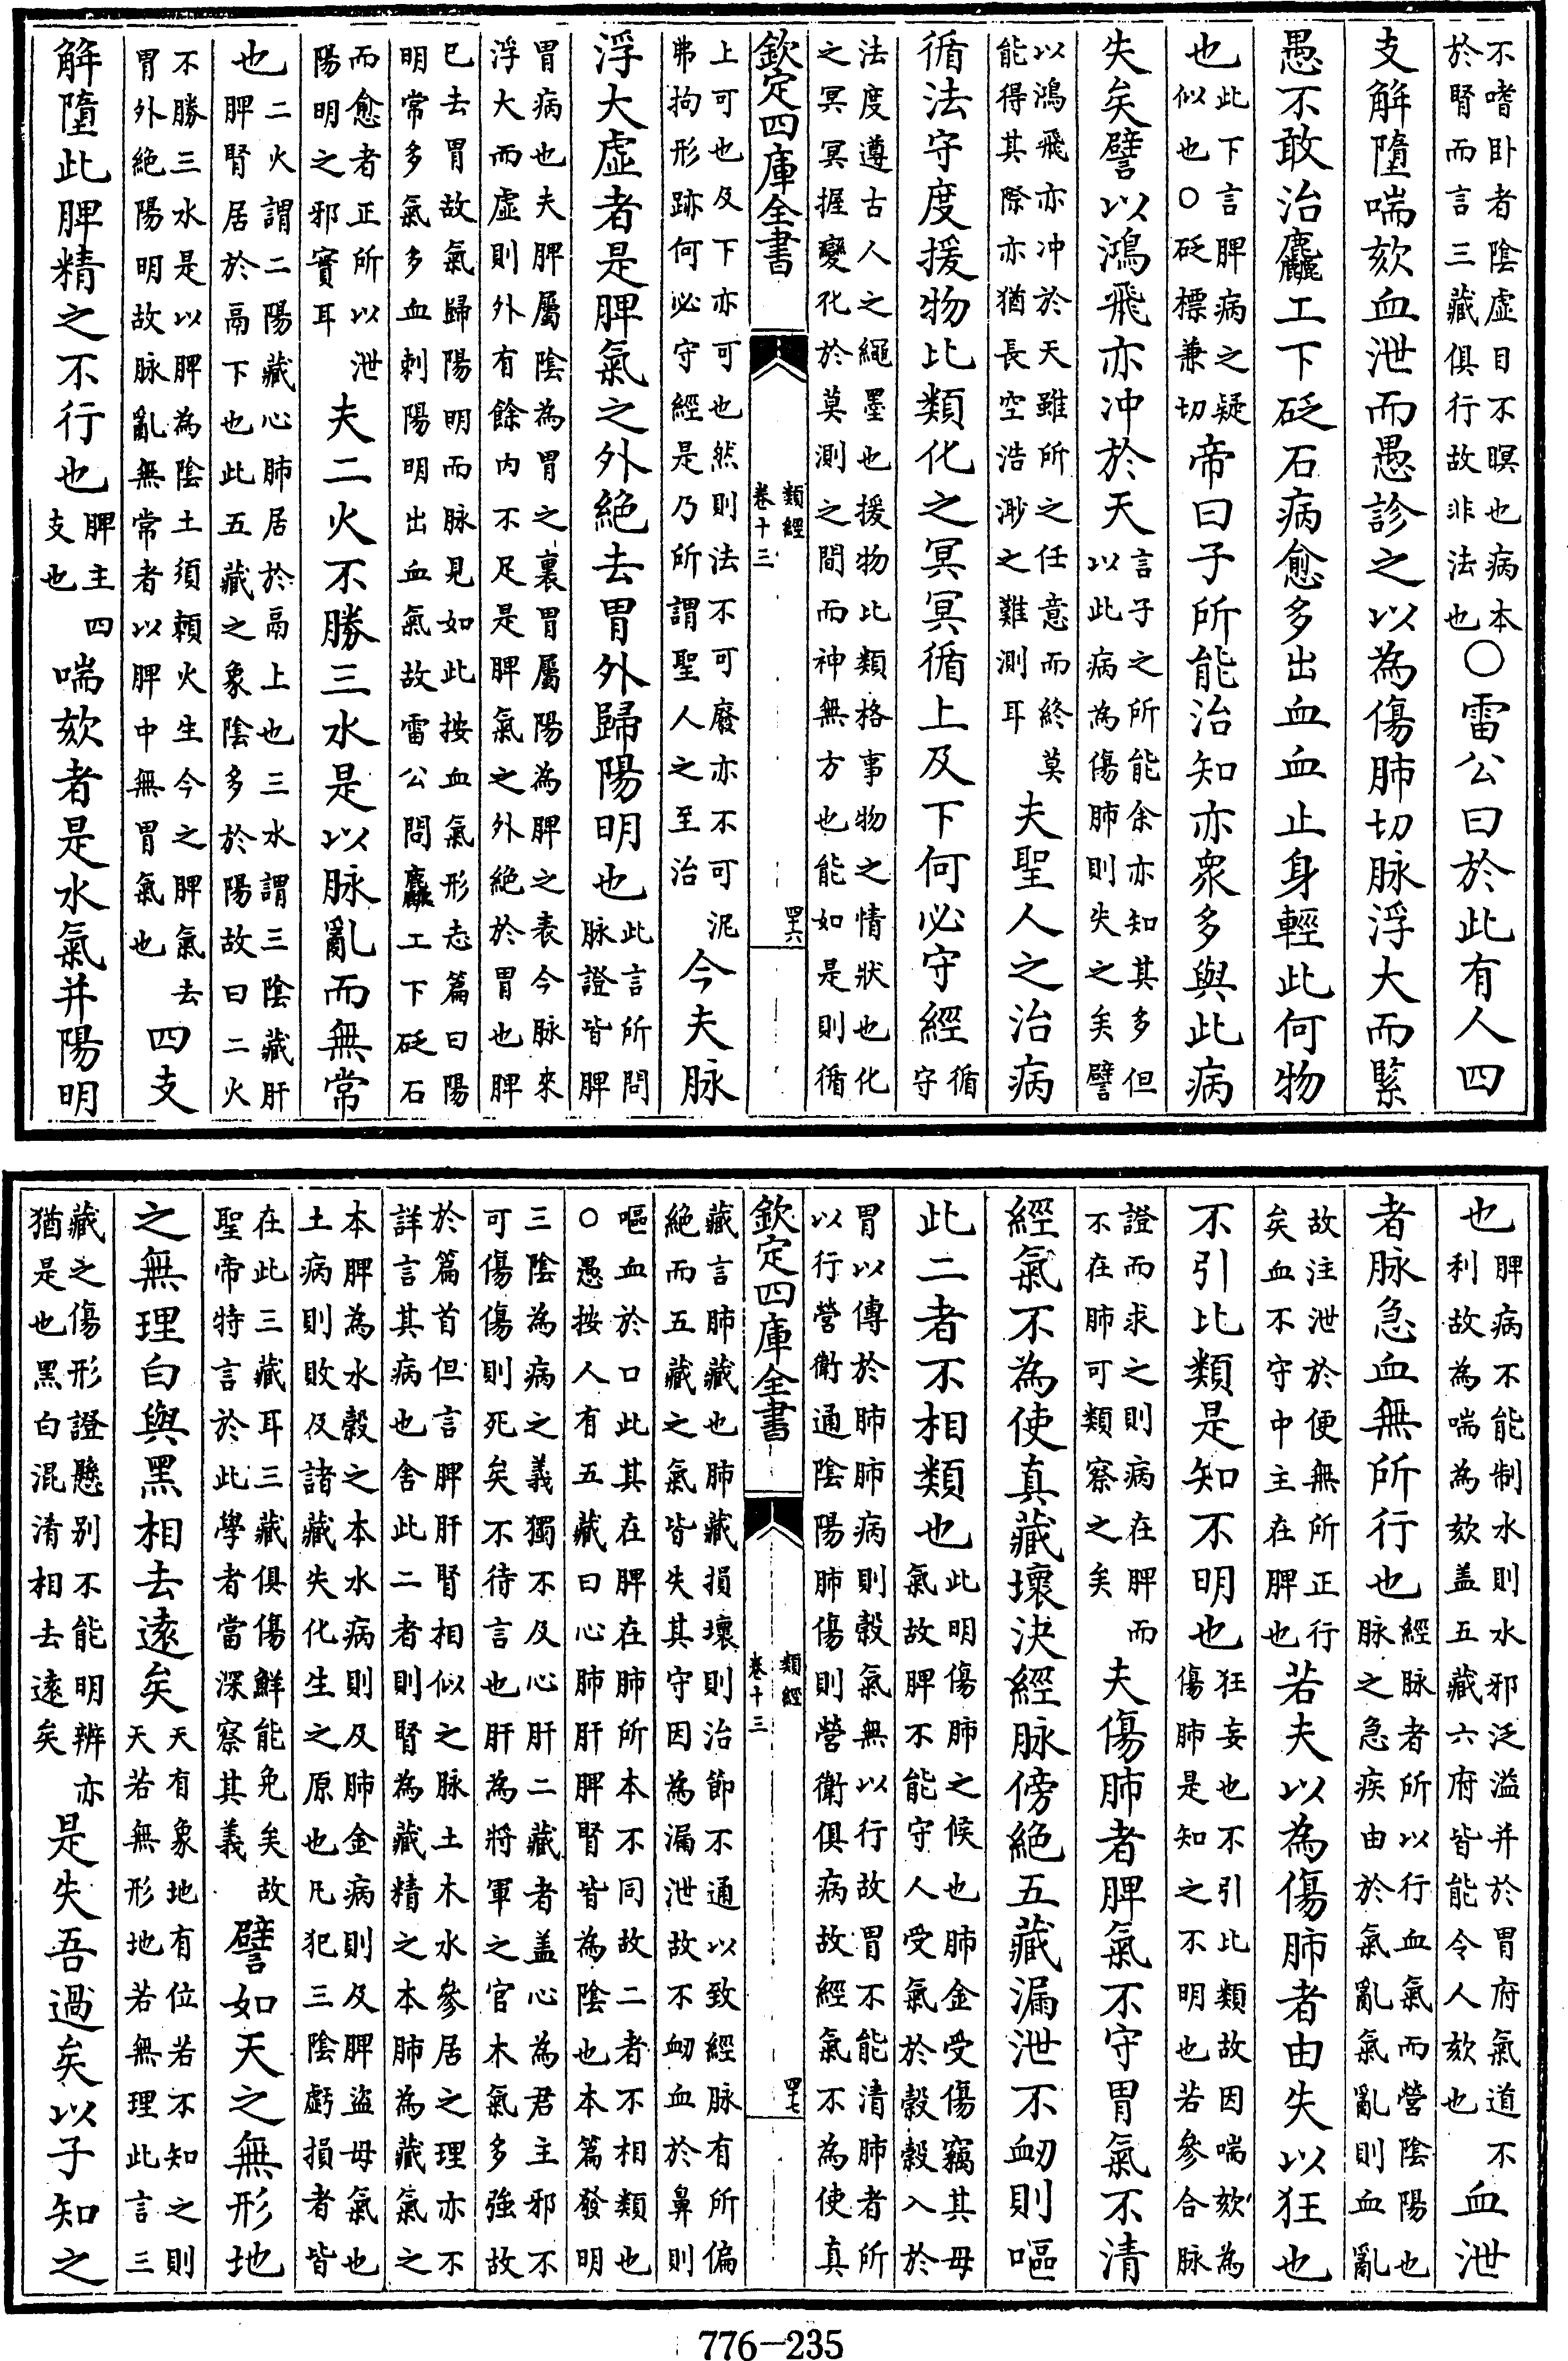 不嗜卧者陰虛目不暝也病本
於腎而言三藏俱行故非法也
〇雷公曰於此有人四
支解墮喘欬血泄而愚診之以為傷肺切脉浮大而緊
愚不敢治麤工下砭石病愈多出血血止身輕此何物
也
此下言脾病之疑
似也〇砭標兼切
帝曰子所能治知亦衆多與此病
失矣譬以鴻飛亦冲於天
言子之所能余亦知其多但
以此病為傷肺則失之矣譬
以鴻飛亦冲於天雖所之任意而終莫
能得其際亦猶長空浩渺之難測耳
夫聖人之治病
循法守度援物比類化之冥冥循上及下何必守經
循
守
法度遵古人之繩墨也援物比類格事物之情狀也化
之冥冥握變化於莫測之間而神無方也能如是則循
欽定四庫全書
類經
卷十三
四十六
上可也及下亦可也然則法不可廢亦不可泥
弗拘形跡何必守經是乃所謂聖人之至治
今夫脉
浮大虛者是脾氣之外絶去胃外歸陽明也
此言所問
脉證皆脾
胃病也夫脾屬陰為胃之裏胃屬陽為脾之表今脉來
浮大而虛則外有餘内不足是脾氣之外絶於胃也脾
已去胃故氣歸陽明而脉見如此按血氣形志篇曰陽
明常多氣多血刺陽明出血氣故雷公問麤工下砭石
而愈者正所以泄
陽明之邪實耳
夫二火不勝三水是以脉亂而無常
也
二火謂二陽藏心肺居於鬲上也三水謂三陰藏肝
脾腎居於鬲下也此五藏之象陰多於陽故曰二火
不勝三水是以脾為陰土須頼火生今之脾氣去
胃外絶陽明故脉亂無常者以脾中無胃氣也
四支
解墮此脾精之不行也
脾主四
支也
喘欬者是水氣并陽明
也
脾病不能制水則水邪泛溢并於胃府氣道不
利故為喘為欬盖五藏六府皆能令人欬也
血泄
者脉急血無所行也
經脉者所以行血氣而營陰陽也
脉之急疾由於氣亂氣亂則血亂
故注泄於便無所正行
矣血不守中主在脾也
若夫以為傷肺者由失以狂也
不引比類是知不明也
狂妄也不引比類故因喘欬為
傷肺是知之不明也若參合脉
證而求之則病在脾而
不在肺可類察之矣
夫傷肺者脾氣不守胃氣不清
經氣不為使真藏壞決經脉傍絶五藏漏泄不衂則嘔
此二者不相類也
此明傷肺之候也肺金受傷竊其母
氣故脾不能守人受氣於穀穀入於
胃以傳於肺肺病則穀氣無以行故胃不能清肺者所
以行營衛通陰陽肺傷則營衛俱病故經氣不為使真
欽定四庫全書
類經
卷十三
四十七
藏言肺藏也肺藏損壞則治節不通以致經脉有所偏
絶而五藏之氣皆失其守因為漏泄故不衂血於鼻則
嘔血於口此其在脾在肺所本不同故二者不相類也
〇愚按人有五藏曰心肺肝脾腎皆為陰也本篇發明
三陰為病之義獨不及心肝二藏者盖心為君主邪不
可傷傷則死矣不待言也肝為將軍之官木氣多強故
於篇首但言脾肝腎相似之脉土木水參居之理亦不
詳言其病也舍此二者則腎為藏精之本肺為藏氣之
本脾為水穀之本水病則及肺金病則及脾盜母氣也
土病則敗及諸藏失化生之原也凡犯三陰虧損者皆
在此三藏耳三藏俱傷鮮能免矣故
聖帝特言於此學者當深察其義
譬如天之無形地
之無理白與黑相去遠矣
天有象地有位若不知之則
天若無形地若無理此言三
藏之傷形證懸别不能明辨亦
猶是也黑白混淆相去遠矣
是失吾過矣以子知之
776-235